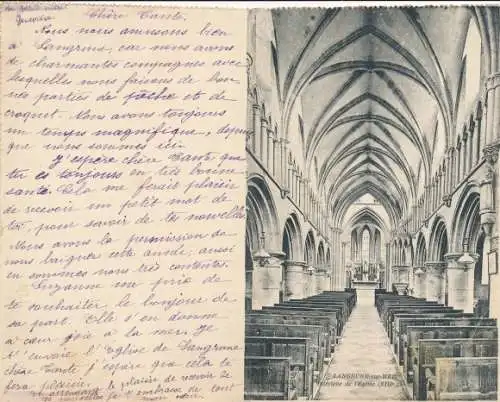 Chère Tante.
Nous nous amusons bien
à Langrune, car nous avons
de charmantes compagnes avec
lesquelles nous faisons de bon
nes parties de pêche et de
croquet. Nous avons toujours
un temps magnifique, depuis
que nous sommes ici.
J'espère chère Tante que
tu es toujours en très bonne
santé. Cela me ferait plaisir
de recevoir un petit mot de
toi, pour savoir de tes nouvelles.
Nous avons la permission de
nous baigner cette année, aussi
en sommes nous très contentes.
Suzanne me prie de
te souhaiter le bonjour de
sa part. Elle s'en donne
à cœur joie à la mer. Je
t'envoie l'Eglise de Langrune
chère Tante j'espère que cela te
fera plaisir.
le plaisir de recevoir
je t'embrasse de tout
mon cœur.
LANGRUNE-sur-MER
Intérieur de l'Eglise